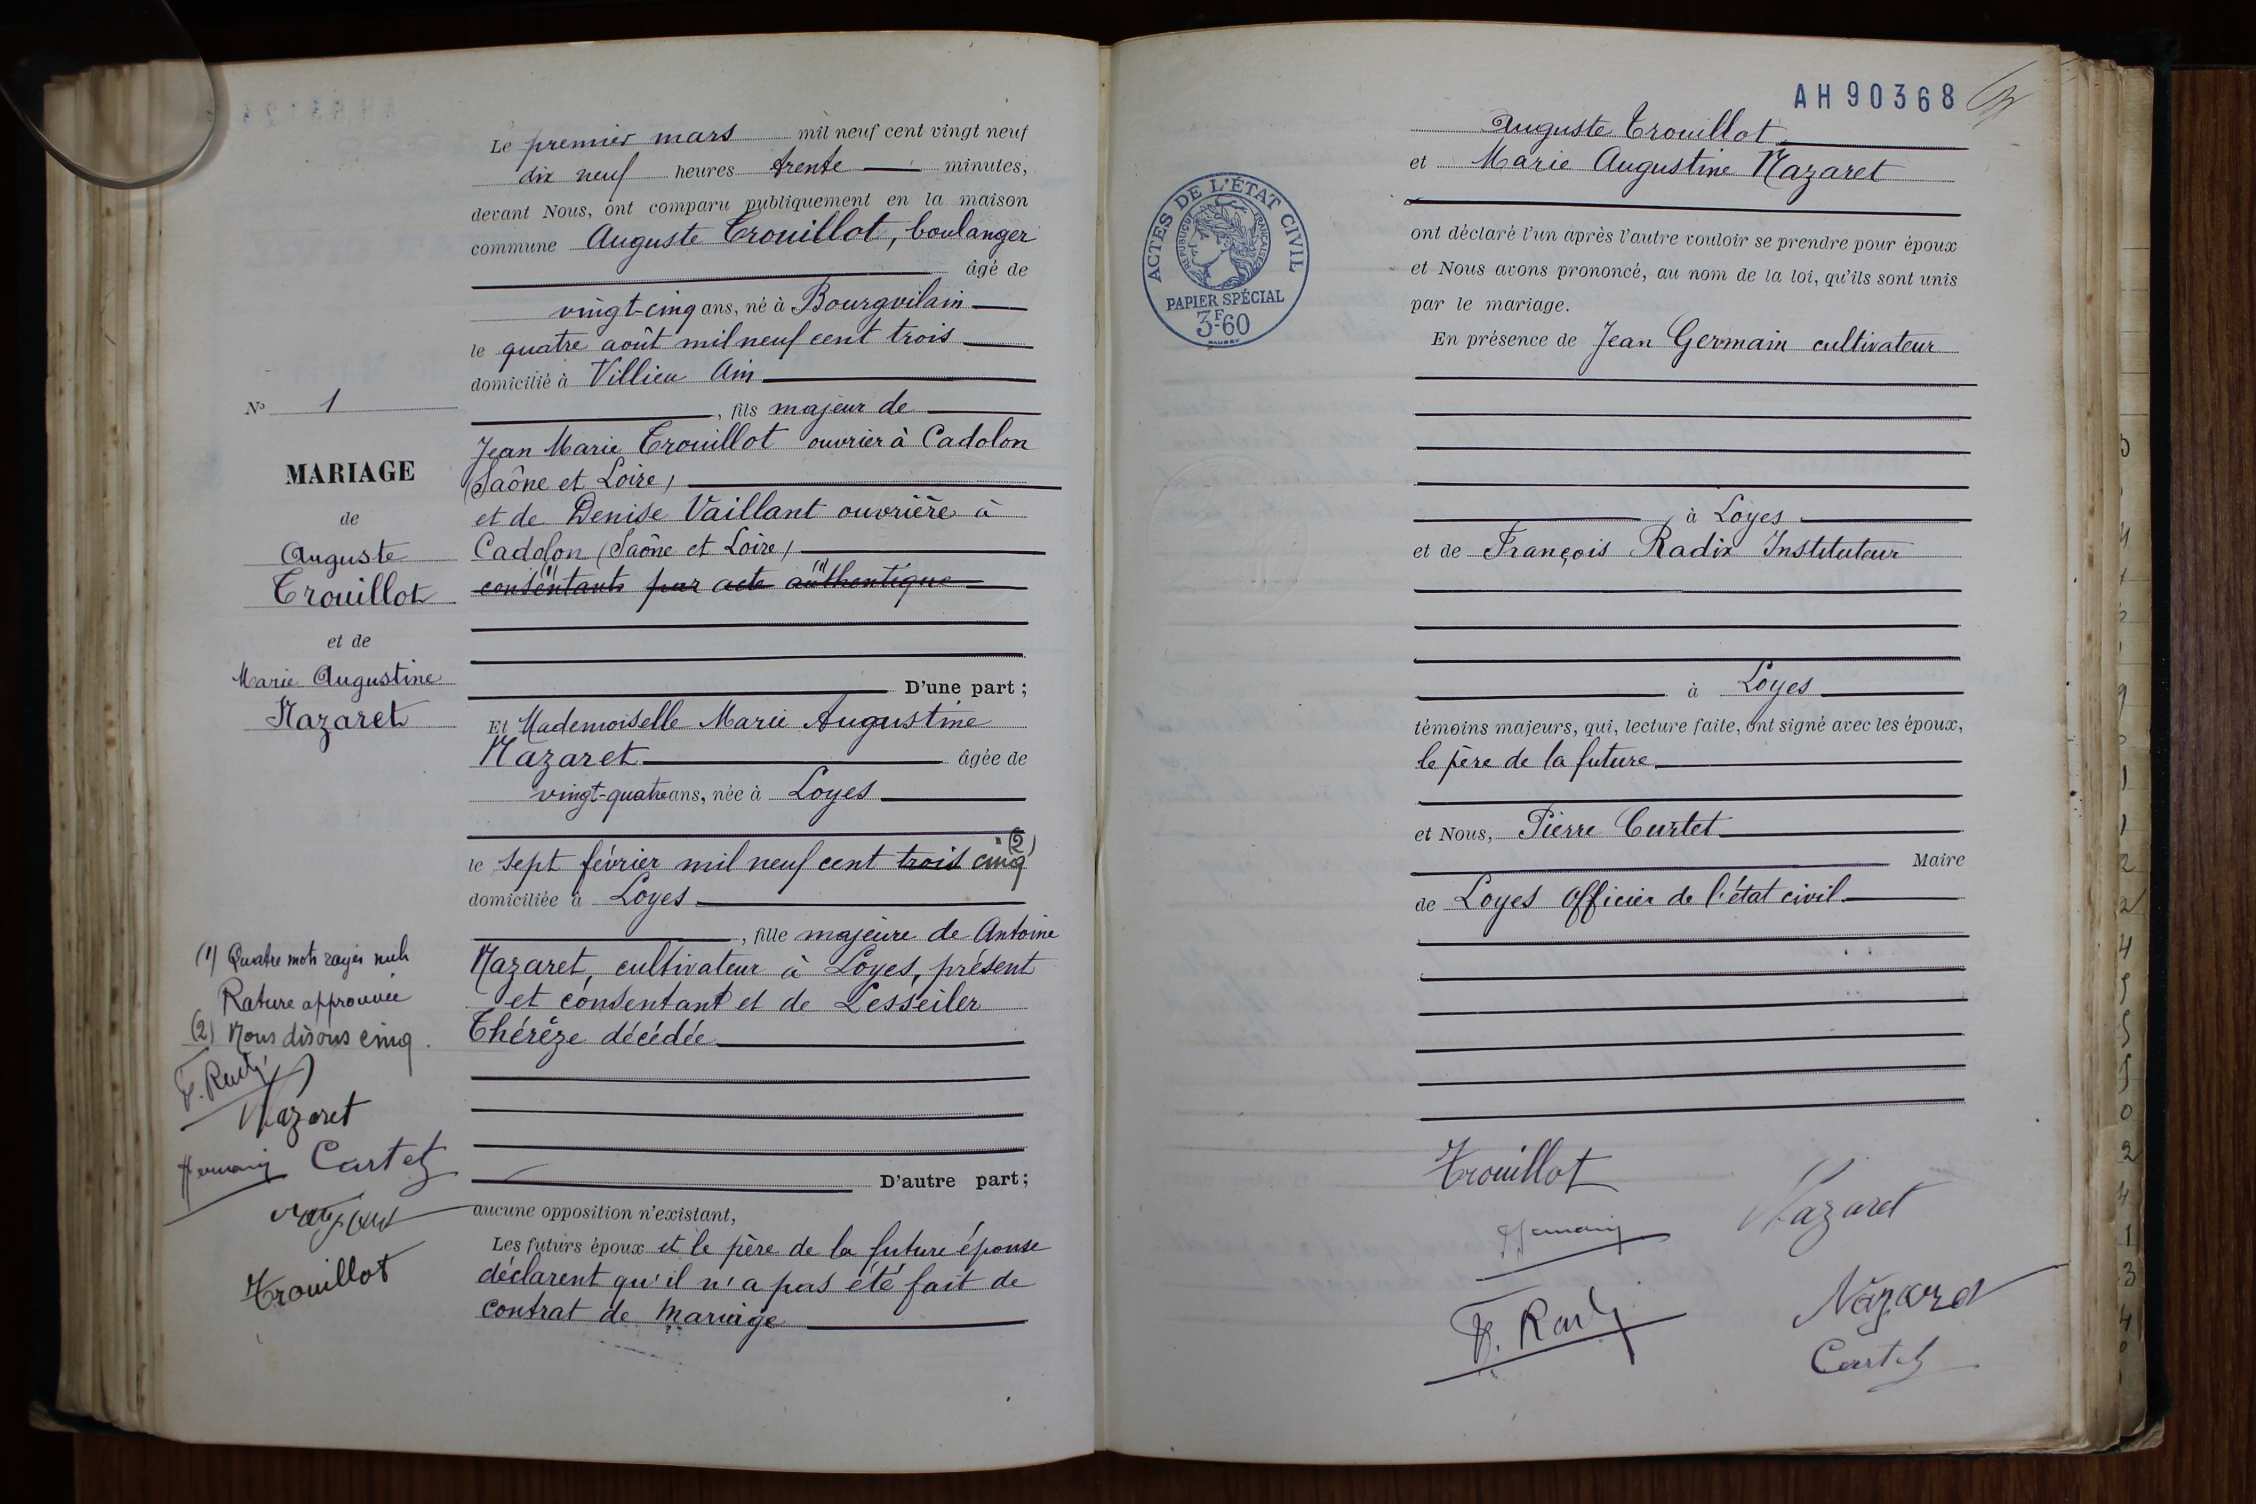 Le premier mars mil neuf cent vingt neuf
dix neuf heures trente minutes,
devant Nous, ont comparu publiquement en la maison
commune Auguste Trouillot, boulanger
âgé de
vingt-cinq ans, né à Bourgvilain
le quatre août mil neuf cent trois
domicilié à Villieu Ain
, fils majeur de
Jean Marie Trouillot ouvrier à Cadolon
(Saône et Loire)
et de Denise Vaillant ouvrière à
Cadolon (Saône et Loire)
(1) (1)
consentants par acte authentique
D'une part ;
Et Mademoiselle Marie Augustine
Nazaret âgée de
vingt-quatre ans, née à Loyes
(2)
le sept février mil neuf cent trois cinq
domiciliée à Loyes
, fille majeure de Antoine
Nazaret, cultivateur à Loyes, présent
et consentant et de Lesseiler
Thérèze décédée
D'autre part ;
aucune opposition n'existant,
Les futurs époux et le père de la future épouse
déclarent qu'il n'a pas été fait de
contrat de mariage
No 1
MARIAGE
de
Auguste
Trouillot
et de
Marie Augustine
Nazaret
(1) Quatre mots rayés nuls
Rature approuvée
(2) Nous disons cinq.
F. Radix
Nazaret
Germain Curtet
Nazaret
Trouillot
AH90368
Auguste Trouillot
et Marie Augustine Nazaret
ACTES DE L'ÉTAT CIVIL
RÉPUBLIQUE FRANÇAISE
PAPIER SPÉCIAL
3F60
ont déclaré l'un après l'autre vouloir se prendre pour époux
et Nous avons prononcé, au nom de la loi, qu'ils sont unis
par le mariage.
En présence de Jean Germain cultivateur
à Loyes
et de François Radix Instituteur
à Loyes
témoins majeurs, qui, lecture faite, ont signé avec les époux,
le père de la future
et Nous, Pierre Curtet
Maire
de Loyes officier de l'état civil
Trouillot
Nazaret
Germain
Nazaret
F. Radix
Curtet